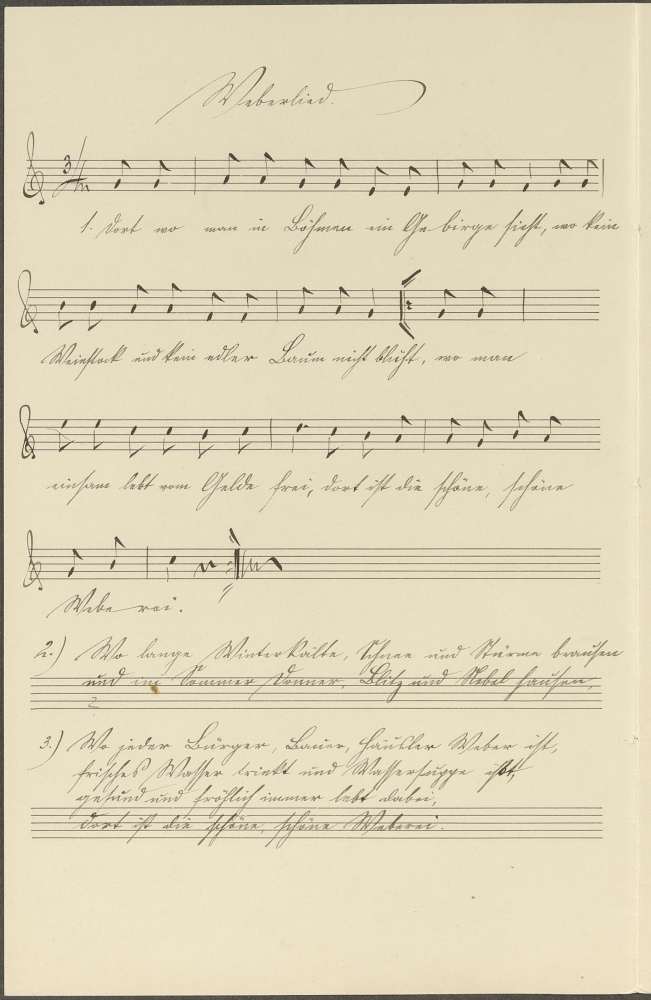 Weberlied.
3/4
1. Dort wo man in Böhmen ein Ge-birge sieht, wo kein
Weinstock und kein edler Baum nicht blüht, wo man
einsam lebt vom Gelde frei, dort ist die schöne, schöne
Webe-rei.
2.) Wo lange Winterkälte, Schnee und Stürme brausen
und im Sommer Donner, Blitz und Nebel hausen,
3.) Wo jeder Bürger, Bauer, Häusler Weber ist,
frisches Wasser trinkt und Wassersuppe ißt,
gesund und fröhlich immer lebt dabei,
dort ist die schöne, schöne Weberei.